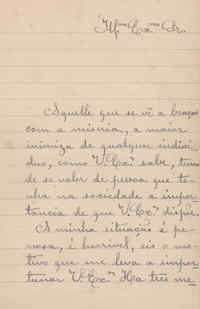 Illmo Exmo Snr.
Aquelle que se vê a braços
com a miseria, a maior
inimiga de qualquer indivi-
duo, como V. Exª sabe, tem
de se valer de pessoa que te-
nha na sociedade a impor-
tancia de que V. Exª dispõe.
A minha situação é pe-
nosa, é horrivel, eis o mo-
tivo que me leva a impor-
tunar V. Exª Ha tres me-